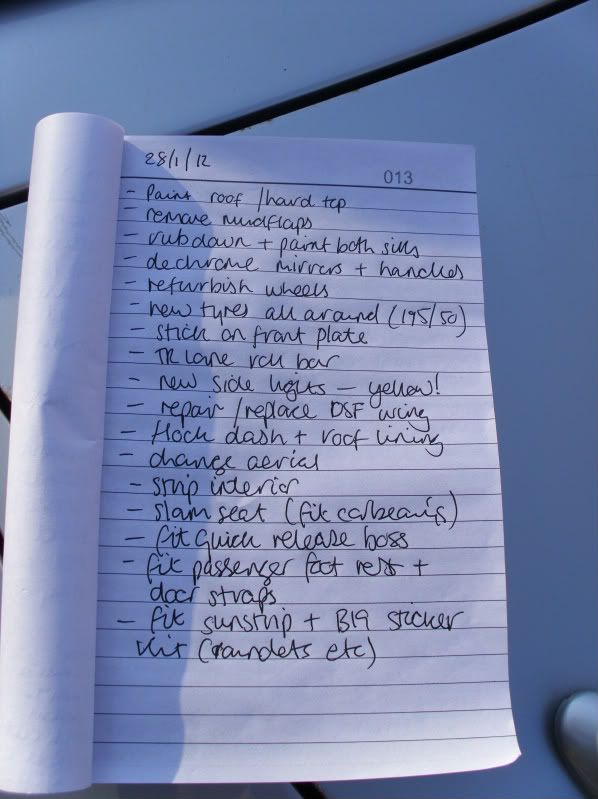 28/1/12
013
- Paint roof / hard top
- remove mudflaps
- rub down + paint both sills
- dechrome mirrors + handles
- refurbish wheels
- new tyres all around (195/50)
- stick on front plate
- TR Lane roll bar
- new side lights - yellow!
- repair / replace DSF wing
- flock dash + roof lining
- change aerial
- strip interior
- slam seat (fit corbeau's)
- fit quick release boss
- fit passenger foot rest +
door straps
- fit sunstrip + B19 sticker
kit (roundels etc)